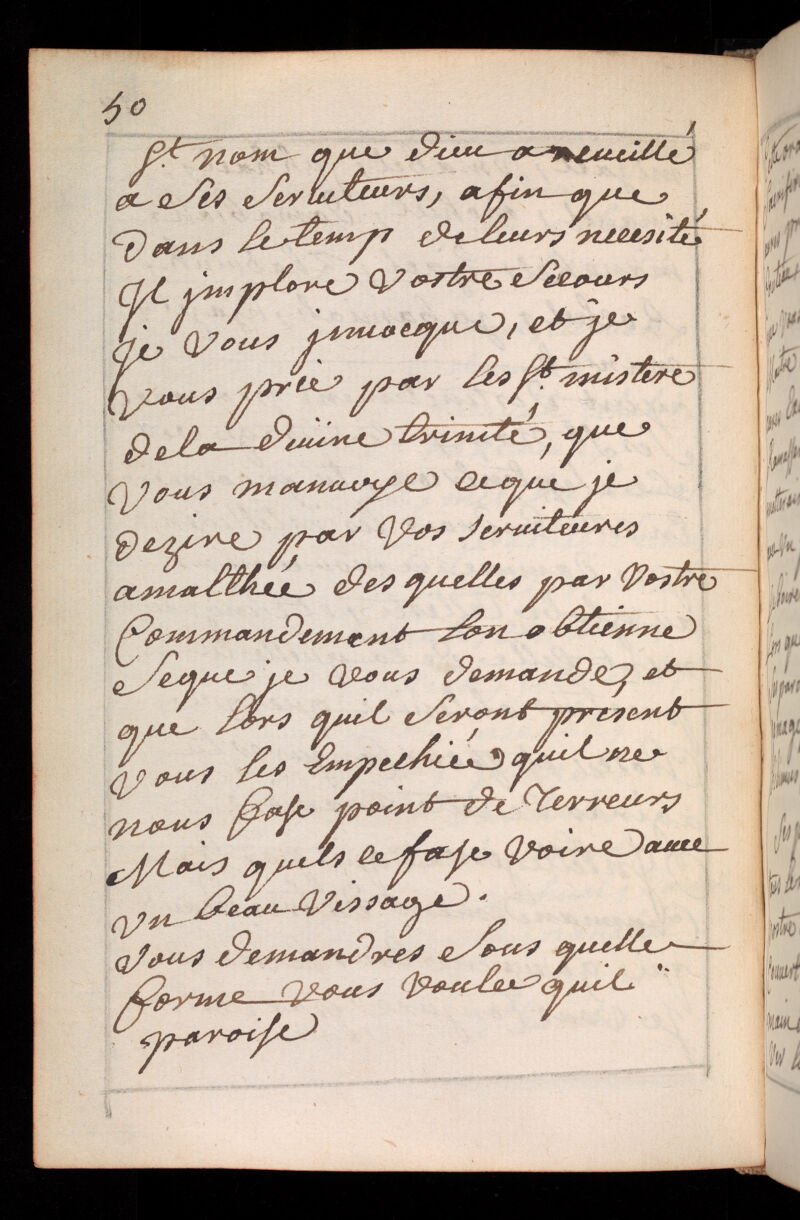 50
St. nom que dieu a reueillé
a ses seruiteurs, afin que
dans le temp de leurs necesité
Jl jmplore vostre secours
je vous jnuocque, et je
vous prie par les St. mistere
de la diuine trinité, que
vous manuoye ce que je
dezire par vos seruiteures
amalthée des quelles par vostre
Commandement lon obtienne
se que je vous demande, et
que lors quil seront present
vous les Empechiée quil ne
nous fase point de Terreurs
Mais quels ce fase voire auec
vn beau vissage.
vous demandres sous quelle
forme vous voulee quil
paroise